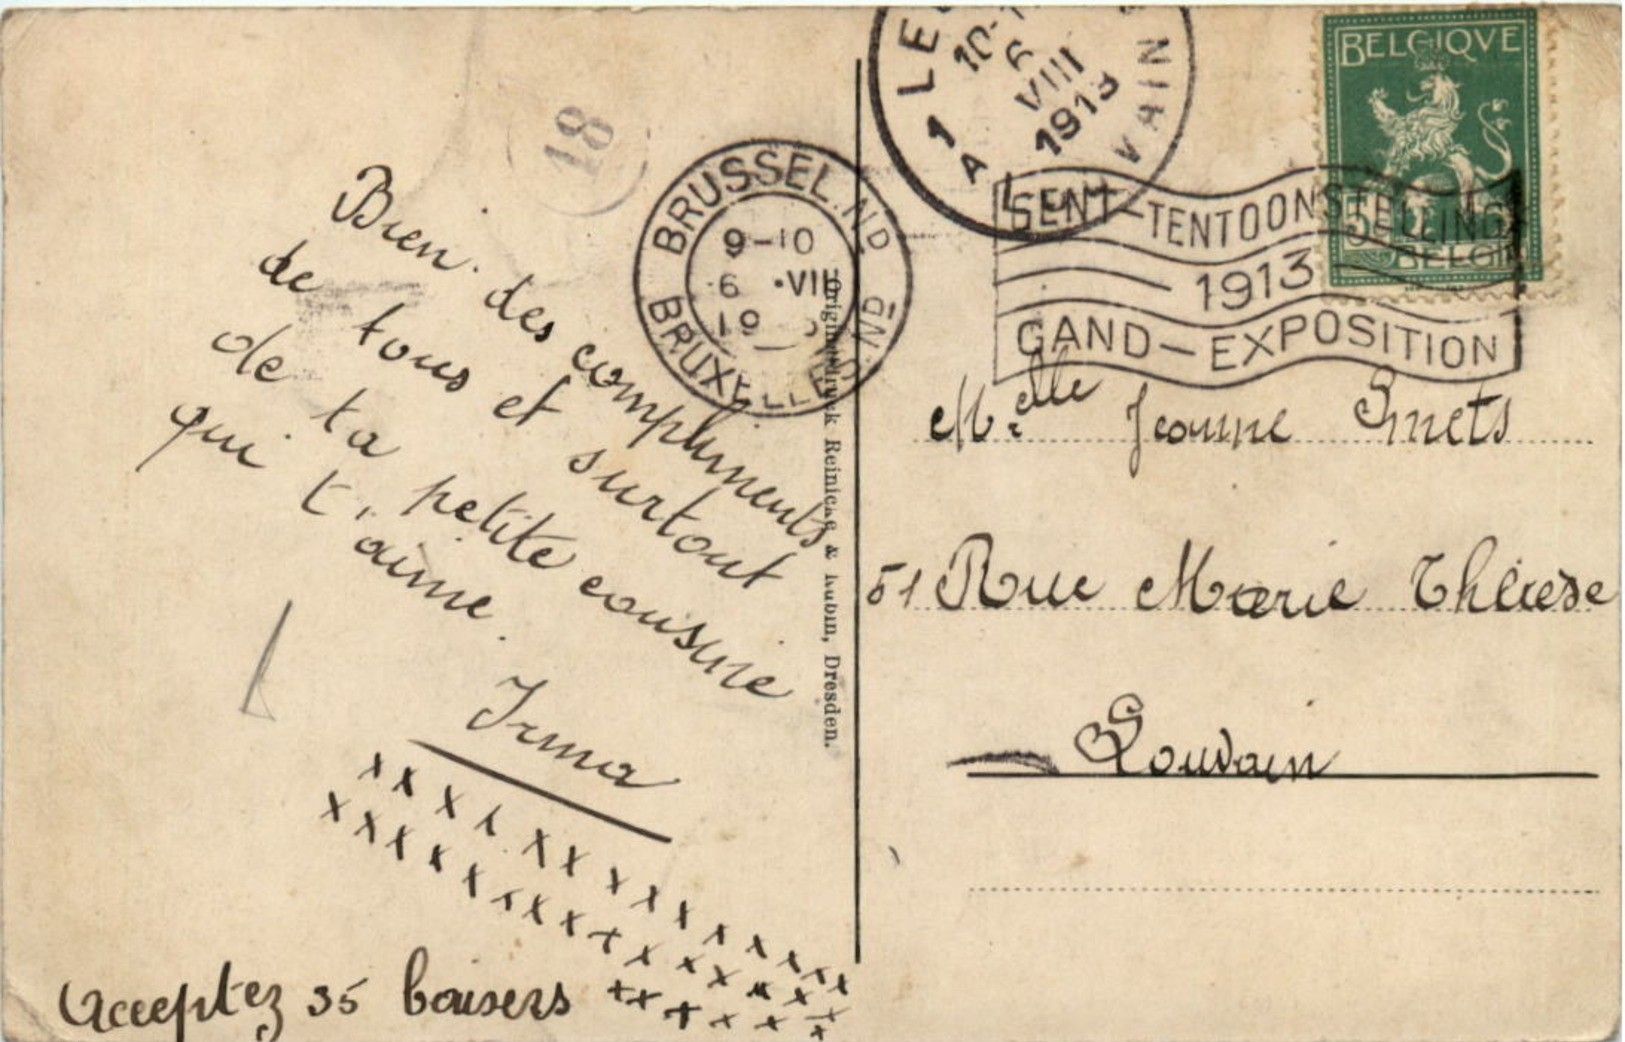 BELGIQVE
5
BELGIË
10-
6
VIII
1913
1 LE
1A
VAIN
GENT-TENTOONSTELLING
1913
GAND-EXPOSITION
18
BRUSSEL.ND
9-10
6 .VIII
19
BRUXELLES
Bien des compliments
de tous et surtout
de ta petite cousine
qui t'aime.
Irma
x x x x x x x x x x x x x x x
x x x x x x x x x x x x x x x
Acceptez 35 baisers x x x x x x
Originaldruck Reinicke & Rubin, Dresden.
M.elle Jeanne Smets
51 Rue Marie Thérese
Louvain